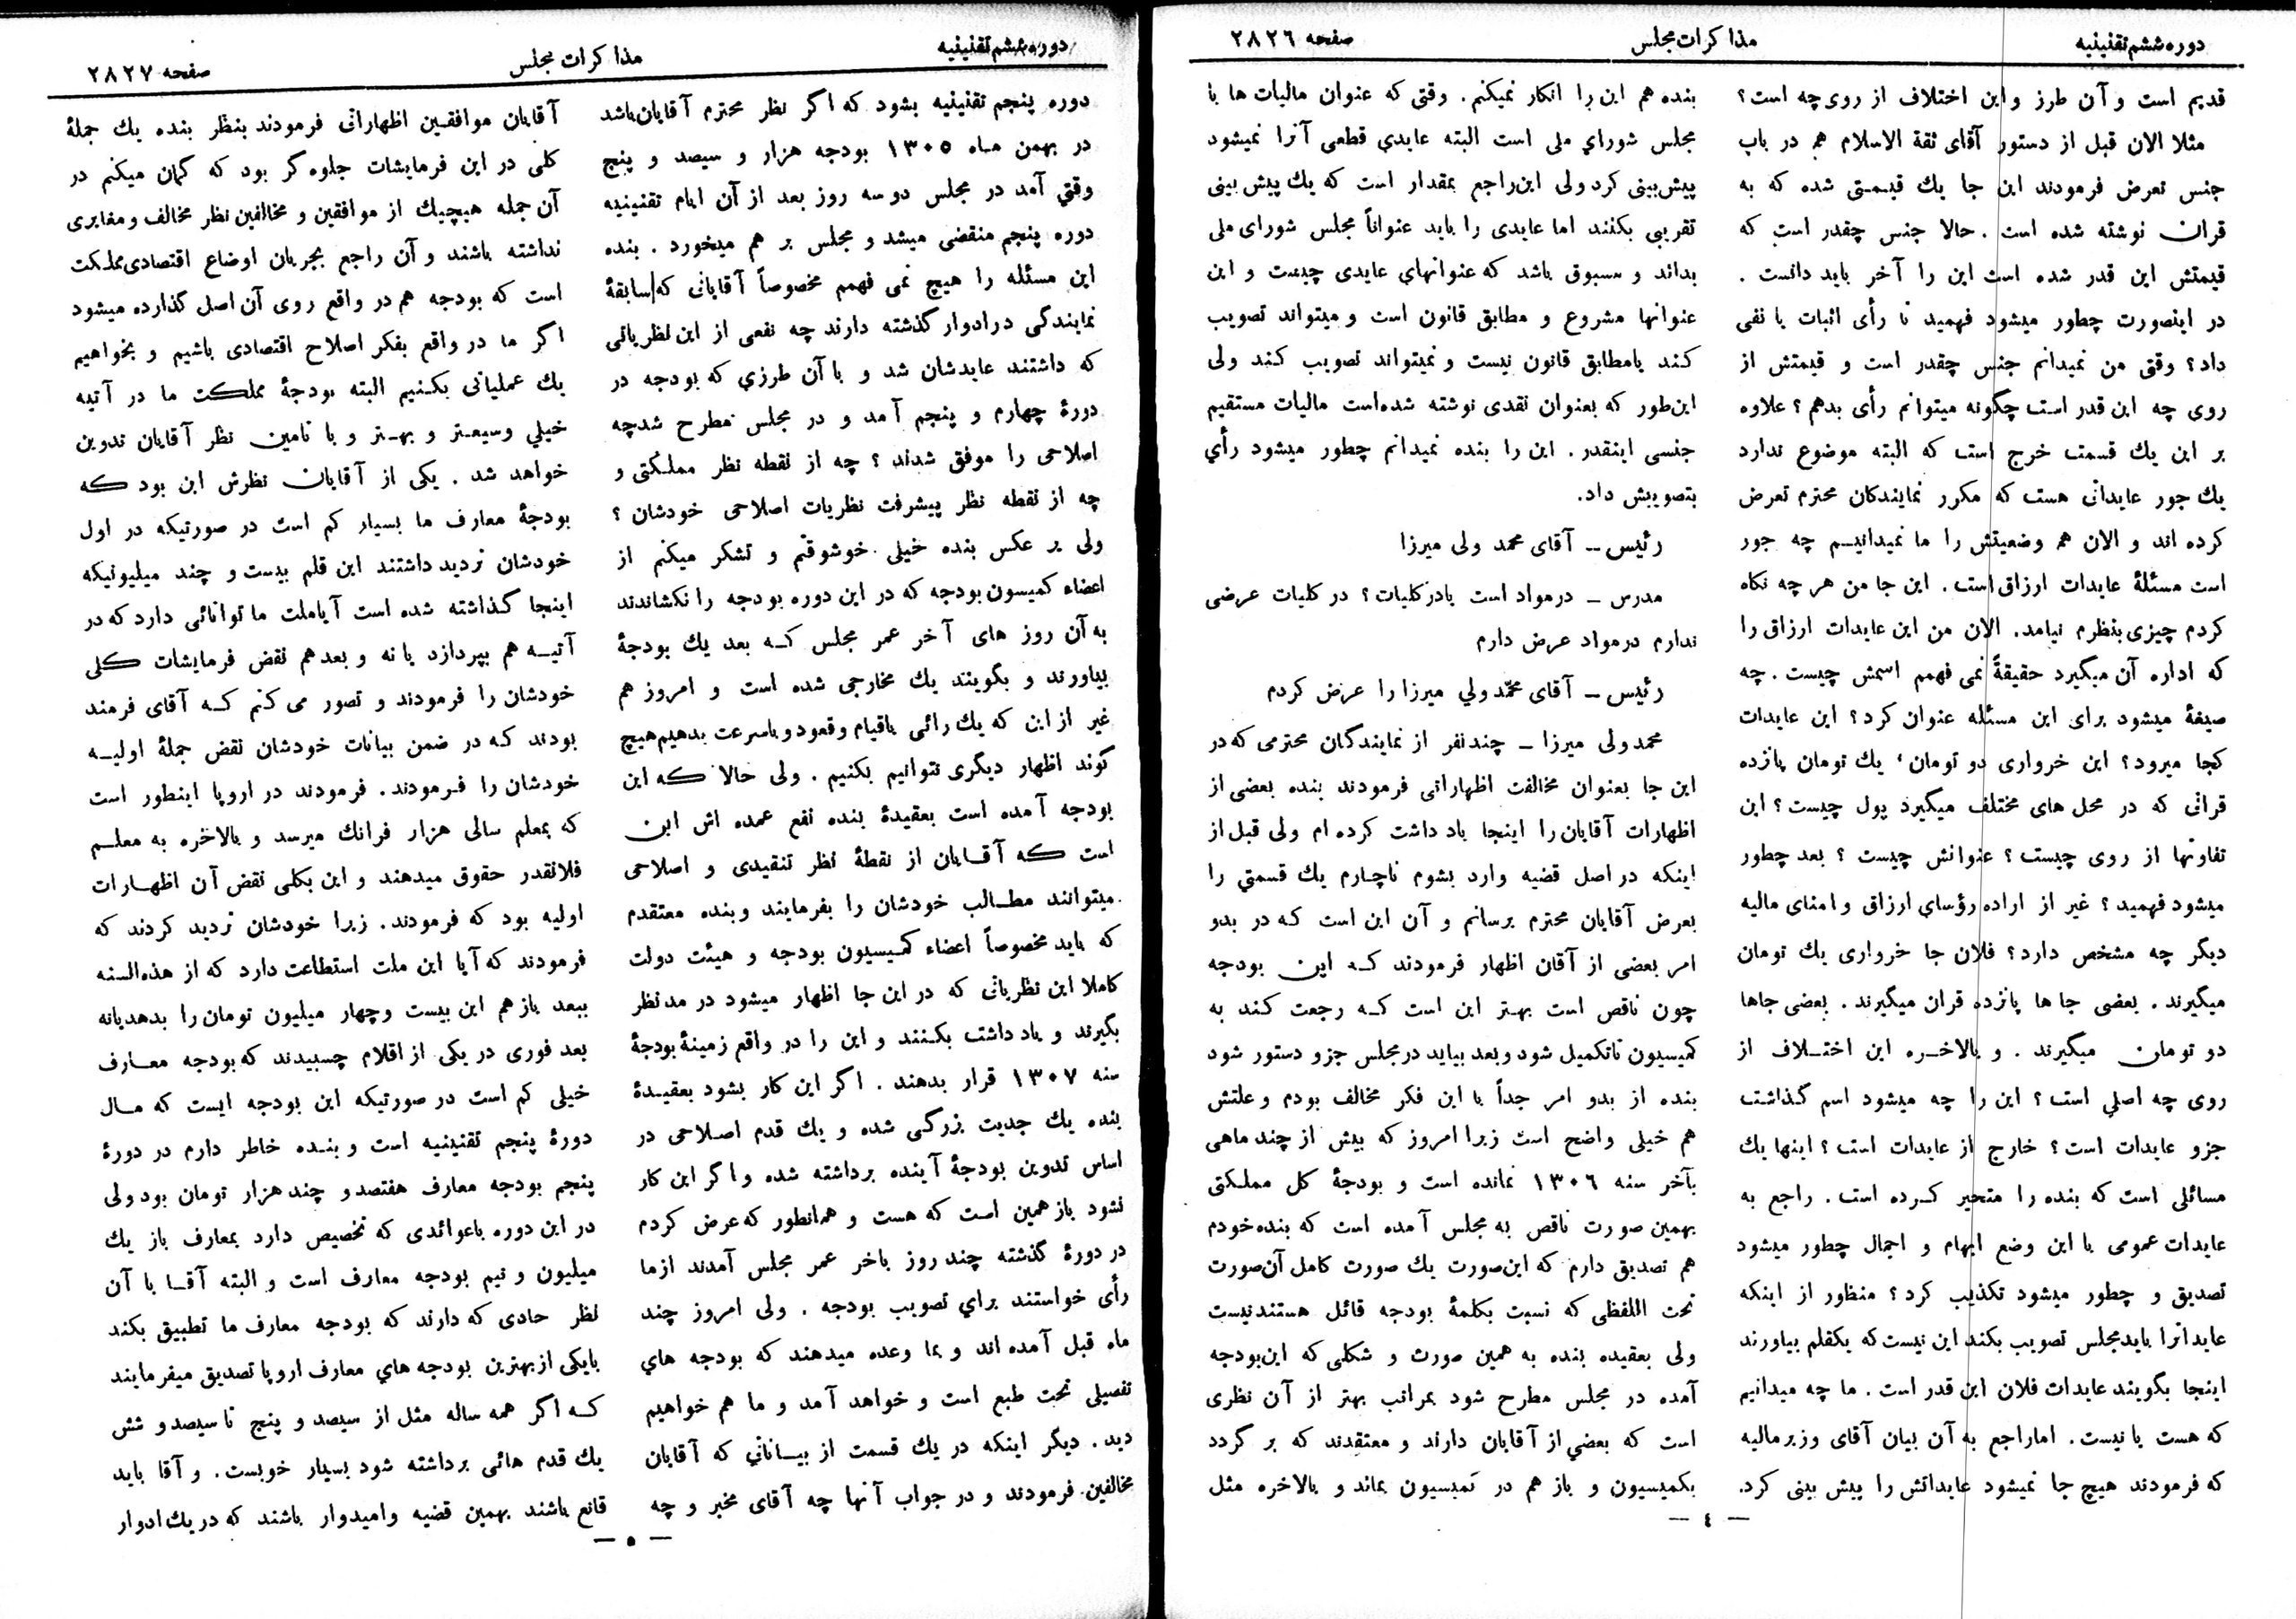 دوره ششم تقنینیه
مذاکرات مجلس
صفحه ۲۸۲۶
قدیم است و آن طرز و این اختلاف از روی چه است؟
مثلا الان قبل از دستور آقای ثقة الاسلام هم در باب
جنس تعرض فرمودند این جا یك قیمتی شده که به
قران نوشته شده است . حالا جنس چقدر است که
قیمتش این قدر شده است این را آخر باید دانست .
در اینصورت چطور میشود فهمید تا رأی اثبات یا نفی
داد؟ وقتی من نمیدانم جنس چقدر است و قیمتش از
روی چه این قدر است چگونه میتوانم رأی بدهم؟ علاوه
بر این یك قسمت خرج است که البته موضوع ندارد
یك جور عایداتی هست که مکرر نمایندگان محترم تعرض
کرده اند و الان هم وضعیتش را ما نمیدانیم چه جور
است مسئلهٔ عایدات ارزاق است . این جا من هر چه نگاه
کردم چیزی بنظرم نیامد. الان من این عایدات ارزاق را
که اداره آن میگیرد حقیقةً نمی فهمم اسمش چیست . چه
صیغهٔ میشود برای این مسئله عنوان کرد؟ این عایدات
کجا میرود؟ این خرواری دو تومان ، یك تومان پانزده
قرانی که در محل های مختلف میگیرد پول چیست؟ این
تفاوتها از روی چیست؟ عنوانش چیست ؟ بعد چطور
میشود فهمید؟ غیر از اراده رؤسای ارزاق و امنای مالیه
دیگر چه مشخص دارد؟ فلان جا خرواری یك تومان
میگیرند . بعضی جا ها پانزده قران میگیرند . بعضی جاها
دو تومان میگیرند . و بالاخره این اختلاف از
روی چه اصلی است؟ این را چه میشود اسم گذاشت
جزو عایدات است؟ خارج از عایدات است؟ اینها یك
مسائلی است که بنده را متحیر کرده است . راجع به
عایدات عمومی با این وضع ابهام و اجمال چطور میشود
تصدیق و چطور میشود تکذیب کرد؟ منظور از اینکه
عایداترا باید مجلس تصویب بکند این نیست که یکقلم بیاورند
اینجا بگویند عایدات فلان این قدر است . ما چه میدانیم
که هست یا نیست . اما راجع به آن بیان آقای وزیر مالیه
که فرمودند هیچ جا نمیشود عایداتش را پیش بینی کرد.
بنده هم این را انکار نمیکنم. وقتی که عنوان مالیات ها با
مجلس شورای ملی است البته عایدی قطعی آنرا نمیشود
پیش بینی کرد ولی این راجع بمقدار است که یك پیش بینی
تقریبی بکنند اما عایدی را باید عنواناً مجلس شورای ملی
بداند و مسبوق باشد که عنوانهای عایدی چیست و این
عنوانها مشروع و مطابق قانون است و میتواند تصویب
کند یا مطابق قانون نیست و نمیتواند تصویب کند ولی
این طور که بعنوان نقدی نوشته شده است مالیات مستقیم
جنسی اینقدر . این را بنده نمیدانم چطور میشود رأی
بتصویبش داد.
رئیس ــ آقای محمد ولی میرزا
مدرس ــ در مواد است یا در کلیات؟ در کلیات عرضی
ندارم در مواد عرض دارم
رئیس ــ آقای محمّد ولی میرزا را عرض کردم
محمد ولی میرزا ــ چند نفر از نمایندگان محترمی که در
این جا بعنوان مخالفت اظهاراتی فرمودند بنده بعضی از
اظهارات آقایان را اینجا یاد داشت کرده ام ولی قبل از
اینکه در اصل قضیه وارد بشوم ناچارم یك قسمتی را
بعرض آقایان محترم برسانم و آن این است که در بدو
امر بعضی از آقان اظهار فرمودند که این بودجه
چون ناقص است بهتر این است که رجعت کند به
کمیسیون تا تکمیل شود و بعد بیاید در مجلس جزو دستور شود
بنده از بدو امر جداً با این فکر مخالف بودم و علتش
هم خیلی واضح است زیرا امروز که بیش از چند ماهی
بآخر سنه ۱۳۰۶ نمانده است و بودجهٔ کل مملکتی
بهمین صورت ناقص به مجلس آمده است که بنده خودم
هم تصدیق دارم که این صورت یك صورت کامل آن صورت
تحت اللفظی که نسبت بکلمهٔ بودجه قائل هستند نیست
ولی بعقیده بنده به همین صورت و شکلی که این بودجه
آمده در مجلس مطرح شود بمراتب بهتر از آن نظری
است که بعضی از آقایان دارند و معتقدند که بر گردد
بکمیسیون و باز هم در کمیسیون بماند و بالاخره مثل
— ٤ —
دوره ششم تقنینیه
مذاکرات مجلس
صفحه ۲۸۲۷
دوره پنجم تقنینیه بشود که اگر نظر محترم آقایان باشد
در بهمن ماه ۱۳۰۵ بودجه هزار و سیصد و پنج
وقتی آمد در مجلس دو سه روز بعد از آن ایام تقنینیه
دوره پنجم منقضی میشد و مجلس بر هم میخورد . بنده
این مسئله را هیچ نمی فهمم مخصوصاً آقایانی که سابقهٔ
نمایندگی در ادوار گذشته دارند چه نفعی از این نظریاتی
که داشتند عایدشان شد و با آن طرزی که بودجه در
دورهٔ چهارم و پنجم آمد و در مجلس مطرح شد چه
اصلاحی را موفق شدند ؟ چه از نقطه نظر مملکتی و
چه از نقطه نظر پیشرفت نظریات اصلاحی خودشان ؟
ولی بر عکس بنده خیلی خوشوقتم و تشکر میکنم از
اعضاء کمیسون بودجه که در این دوره بودجه را نکشاندند
به آن روز های آخر عمر مجلس که بعد یك بودجهٔ
بیاورند و بگویند یك مخارجی شده است و امروز هم
غیر از این که یك رائی باقیام و قعود و باسرعت بدهیم هیچ
گوند اظهار دیگری نتوانیم بکنیم . ولی حالا که این
بودجه آمده است بعقیدهٔ بنده نفع عمده اش این
است که آقایان از نقطهٔ نظر تنقیدی و اصلاحی
میتوانند مطالب خودشان را بفرمایند و بنده معتقدم
که باید مخصوصاً اعضاء کمیسیون بودجه و هیئت دولت
کاملا این نظریاتی که در این جا اظهار میشود در مد نظر
بگیرند و یاد داشت بکنند و این را در واقع زمینهٔ بودجهٔ
سنه ۱۳۰۷ قرار بدهند . اگر این کار بشود بعقیدهٔ
بنده یك جدیت بزرگی شده و یك قدم اصلاحی در
اساس تدوین بودجهٔ آینده برداشته شده و اگر این کار
نشود باز همین است که هست و همانطور که عرض کردم
در دورهٔ گذشته چند روز باخر عمر مجلس آمدند از ما
رأی خواستند برای تصویب بودجه . ولی امروز چند
ماه قبل آمده اند و بما وعده میدهند که بودجه های
تفصیلی تحت طبع است و خواهد آمد و ما هم خواهیم
دید . دیگر اینکه در یك قسمت از بیاناتی که آقایان
مخالفین فرمودند و در جواب آنها چه آقای مخبر و چه
آقایان موافقین اظهاراتی فرمودند بنظر بنده یك جملهٔ
کلی در این فرمایشات جلوه گر بود که گمان میکنم در
آن جمله هیچیك از موافقین و مخالفین نظر مخالف و مغایری
نداشته باشند و آن راجع بجریان اوضاع اقتصادی مملکت
است که بودجه هم در واقع روی آن اصل گذارده میشود
اگر ما در واقع بفکر اصلاح اقتصادی باشیم و بخواهیم
یك عملیاتی بکنیم البته بودجهٔ مملکت ما در آتیه
خیلی وسیعتر و بهتر و با تامین نظر آقایان تدوین
خواهد شد . یکی از آقایان نظرش این بود که
بودجهٔ معارف ما بسیار کم است در صورتیکه در اول
خودشان تردید داشتند این قلم بیست و چند میلیونیکه
اینجا گذاشته شده است آیا ملت ما توانائی دارد که در
آتیه هم بپردازد یا نه و بعد هم نقض فرمایشات کلی
خودشان را فرمودند و تصور می کنم که آقای فرمند
بودند که در ضمن بیانات خودشان نقض جملهٔ اولیه
خودشان را فرمودند . فرمودند در اروپا اینطور است
که بمعلم سالی هزار فرانك میرسد و بالاخره به معلم
فلانقدر حقوق میدهند و این بکلی نقض آن اظهارات
اولیه بود که فرمودند . زیرا خودشان تردید کردند که
فرمودند که آیا این ملت استطاعت دارد که از هذه السنه
ببعد باز هم این بیست و چهار میلیون تومان را بدهد یا نه
بعد فوری در یکی از اقلام چسبیدند که بودجه معارف
خیلی کم است در صورتیکه این بودجه ایست که مال
دورهٔ پنجم تقنینیه است و بنده خاطر دارم در دورهٔ
پنجم بودجه معارف هفتصد و چند هزار تومان بود ولی
در این دوره با عوائدی که تخصیص دارد بمعارف باز یك
میلیون و نیم بودجه معارف است و البته آقا با آن
نظر حادی که دارند که بودجه معارف ما تطبیق بکند
بایکی از بهترین بودجه های معارف اروپا تصدیق میفرمایند
که اگر همه ساله مثل از سیصد و پنج تا سیصد و شش
یك قدم هائی برداشته شود بسیار خوبست . و آقا باید
قانع باشند بهمین قضیه و امیدوار باشند که در یك ادوار
— ٥ —